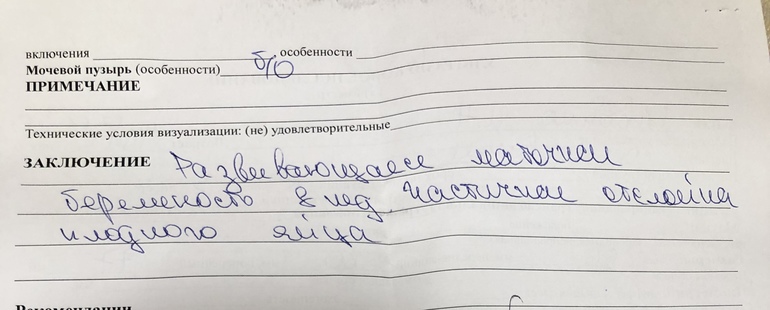 включения особенности
Мочевой пузырь (особенности) б/о
ПРИМЕЧАНИЕ
Технические условия визуализации: (не) удовлетворительные
ЗАКЛЮЧЕНИЕ Развивающаяся маточная
беременость 8 нед. Частичная отслойка
плодного яйца
Рекомендации